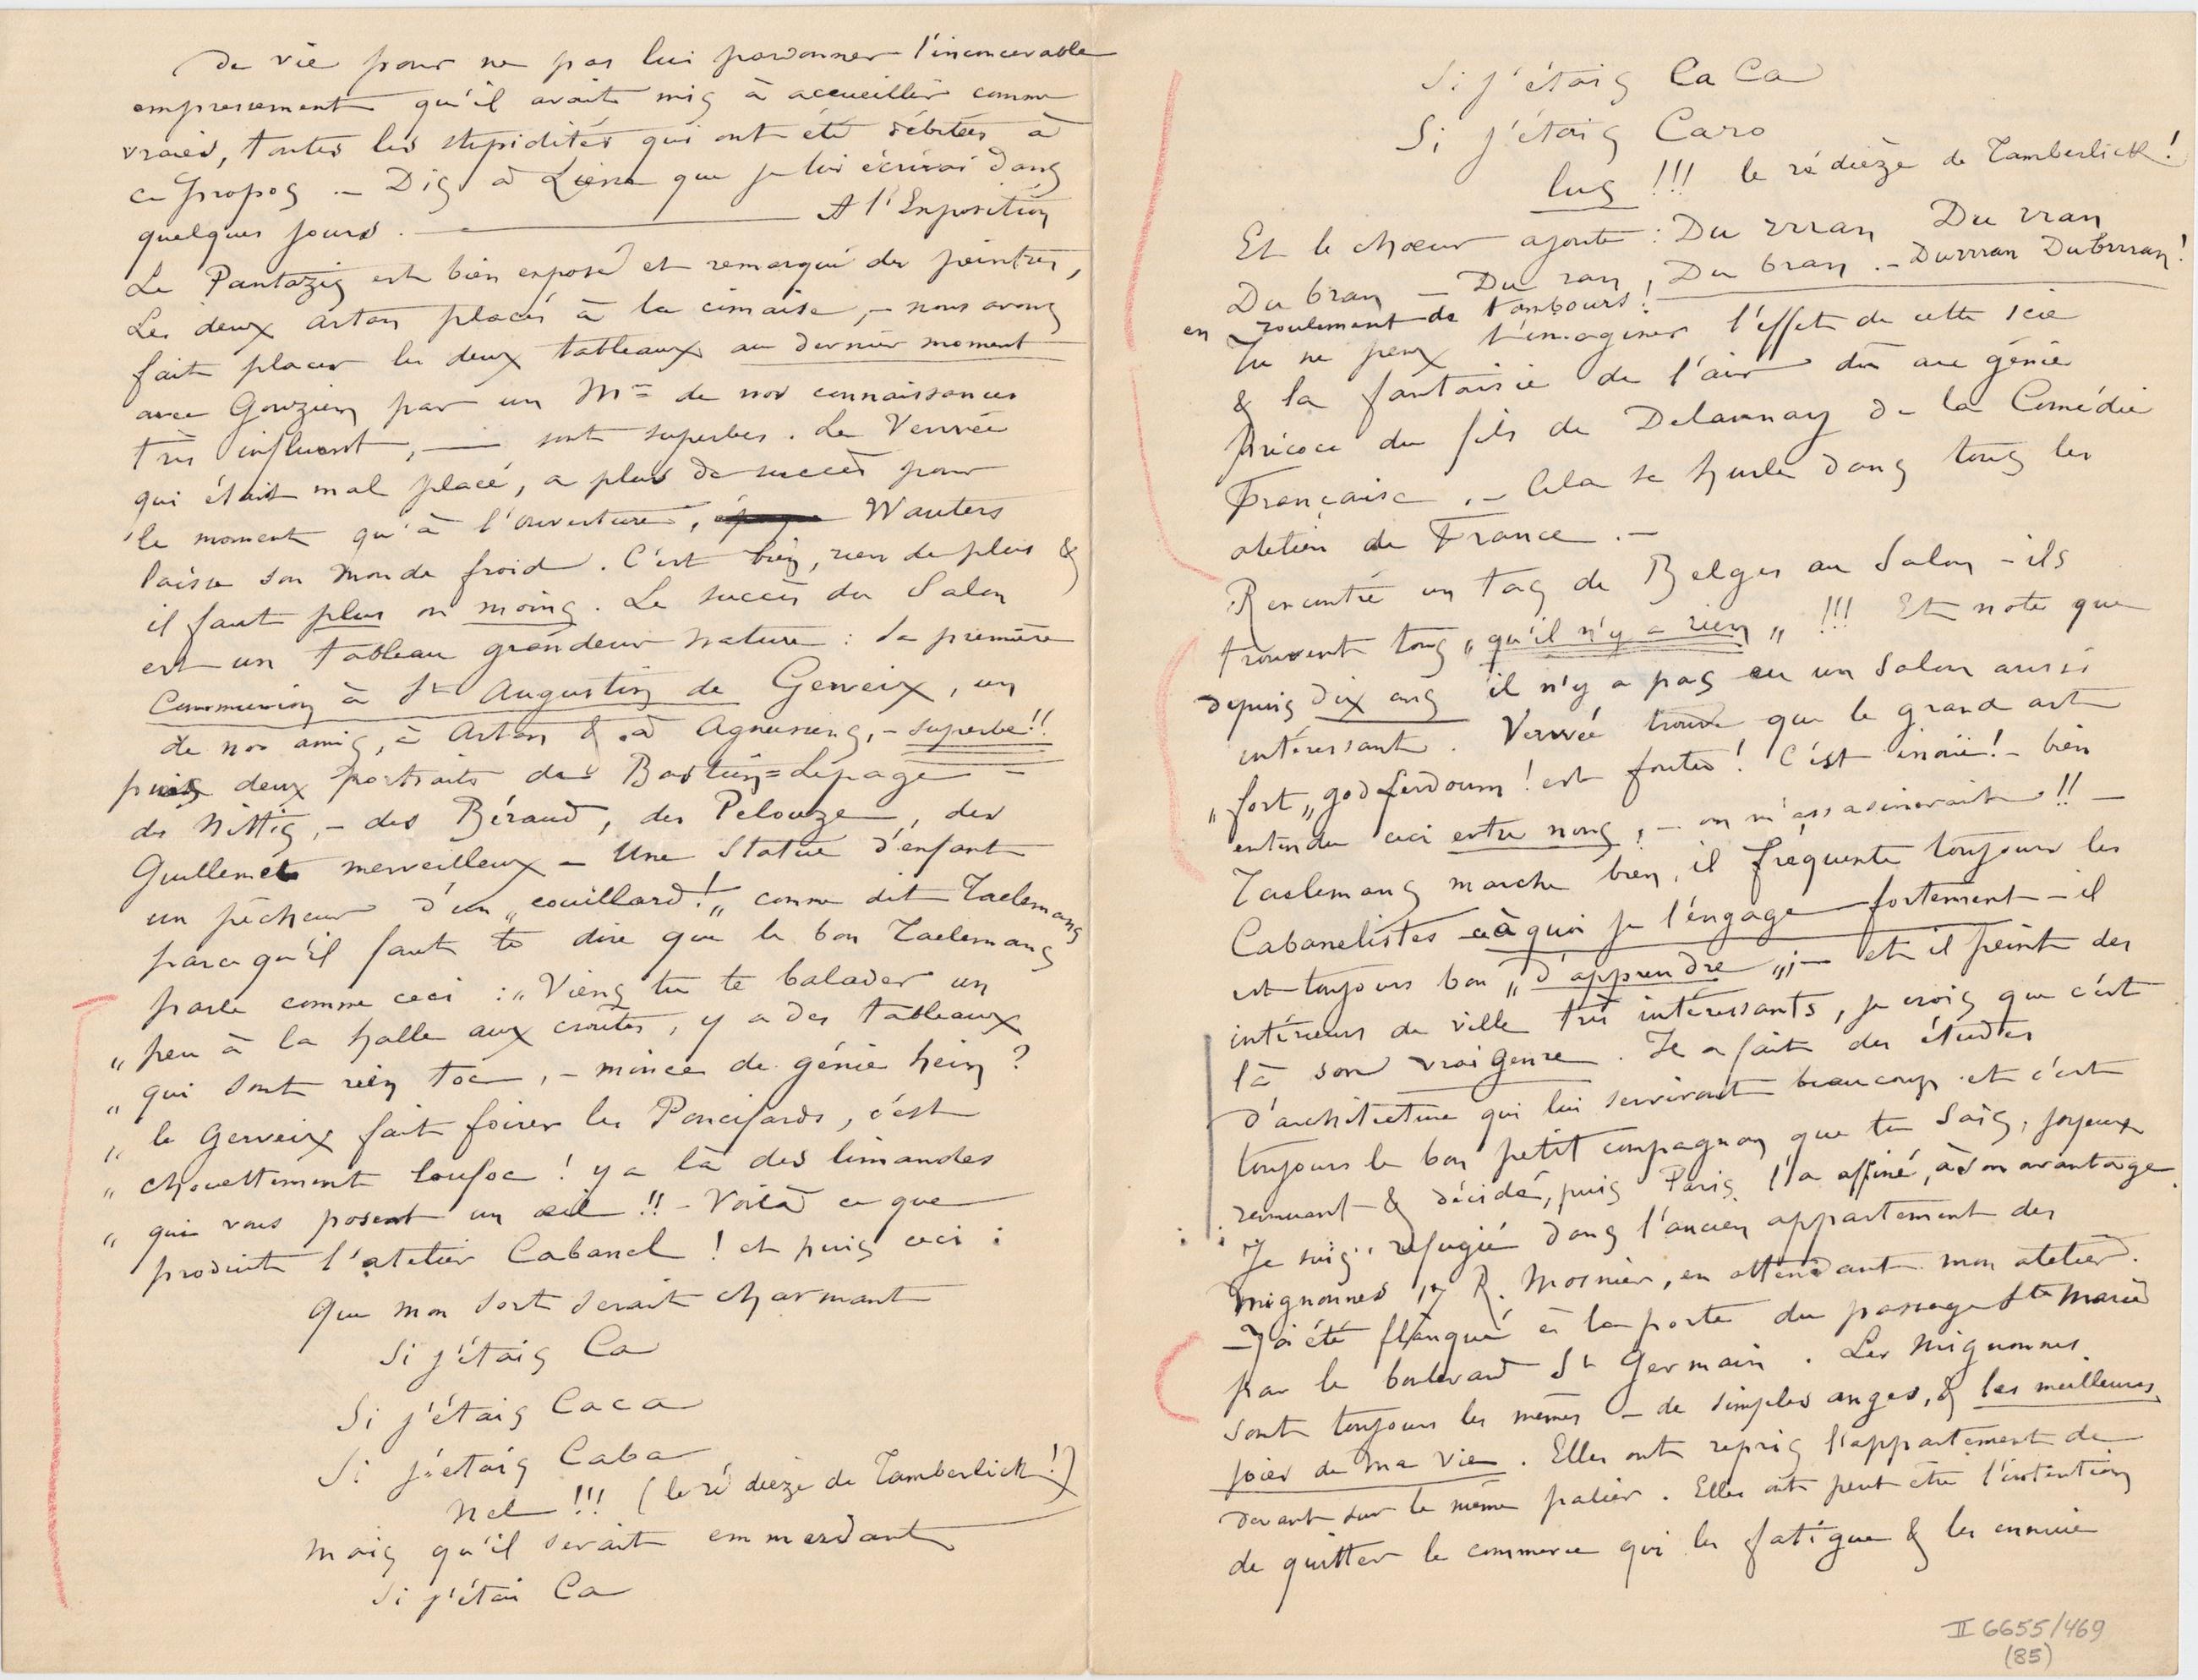 de vie pour ne pas lui pardonner l'inconcevable
empressement qu'il avait mis à accueillir comme
vraies, toutes les stupidités qui ont été débitées à
ce propos – Dis à Liesse que je lui écrirai dans
quelques jours. — A l'Exposition
Le Pantazis est bien exposé et remarqué des peintres,
Les deux Artan placés à la cimaise, – nous avons
fait placer les deux tableaux au dernier moment
avec Gouzien par un Mr de nos connaissances
très influent, — sont superbes. Le Verwée
qui était mal placé, a plus de succès pour
le moment qu'à l'ouverture, Wauters
laisse son monde froid. C'est bien, rien de plus &
il faut plus ou moins. Le succès du Salon
est un tableau grandeur nature : la première
Communion à St Augustin de Gerveix, un
de nos amis, à Artan & à Agneesens, – superbe!!
puis deux portraits de Bastien=Lepage –
des Nittis, – des Béraud, des Pelouze, des
Guillemet merveilleux – Une Statue d'enfant
un pêcheur d'un „couillard!„ comme dit Taelemans
parce qu'il faut te dire que le bon Taelemans
parle comme ceci : „Viens tu te balader un
„ peu à la halle aux croûtes, y a des tableaux
„ qui sont rien toc, – mince de génie hein ?
„ le Gerveix fait foirer les Poncifards, c'est
„ chouettement loufoc ! y a là des limandes
„ qui vous posent un œil !! – Voilà ce que
produit l'atelier Cabanel ! et puis ceci :
Que mon sort serait charmant
Si j'étais Ca
Si j'étais Caca
Si j'étais Caba
Nel !!! (le ré dièze de Tamberlick !)
Mais qu'il serait emmerdant
Si j'étai Ca
Si j'étais Ca Ca
Si j'étais Caro
lus !!! le ré dièze de Tamberlick !
Et le chœur ajoute : Du rrran Du rran
Du bran – Du ran, Du bran. – Durrran Dubrrran !
en roulement de tambours !
Tu ne peux t'imaginer l'effet de cette scie
& la fantaisie de l'air dû au génie
précoce du fils de Delaunay de la Comédie
Française. – Cela se hurle dans tous les
atelier de France. –
Rencontré un tas de Belges au Salon – ils
trouvent tous „qu'il n'y a rien„ !!! Et note que
depuis dix ans il n'y a pas eu un Salon aussi
intéressant. Verwée trouve que le grand art
„fort„ godferdoum ! est foutu ! C'est inouï ! – bien
entendu ceci entre nous, – on m'assassinerait !! –
Taelemans marche bien, il fréquente toujours les
Cabanelistes à quoi je l'engage fortement – il
est toujours bon „d'apprendre„; – et il peint des
intérieurs de ville très intéressants, je crois que c'est
là son vrai genre. Il a fait des études
d'architecture qui lui serviront beaucoup et c'est
toujours le bon petit compagnon que tu sais, joyeux
remuant & décidé, puis Paris l'a affiné, à son avantage.
Je suis réfugié dans l'ancien appartement des
Mignonnes 17 R. Mosnier, en attendant mon atelier.
– J'ai été flanqué à la porte du passage Ste Marie
par le boulevard St Germain. Les Mignonnes
sont toujours les mêmes – de simples anges, & les meilleures
joies de ma vie. Elles ont repris l'appartement de
devant sur le même palier. Elles ont peut être l'intention
de quitter le commerce qui les fatigue & les ennuie
II 6655/469
(85)